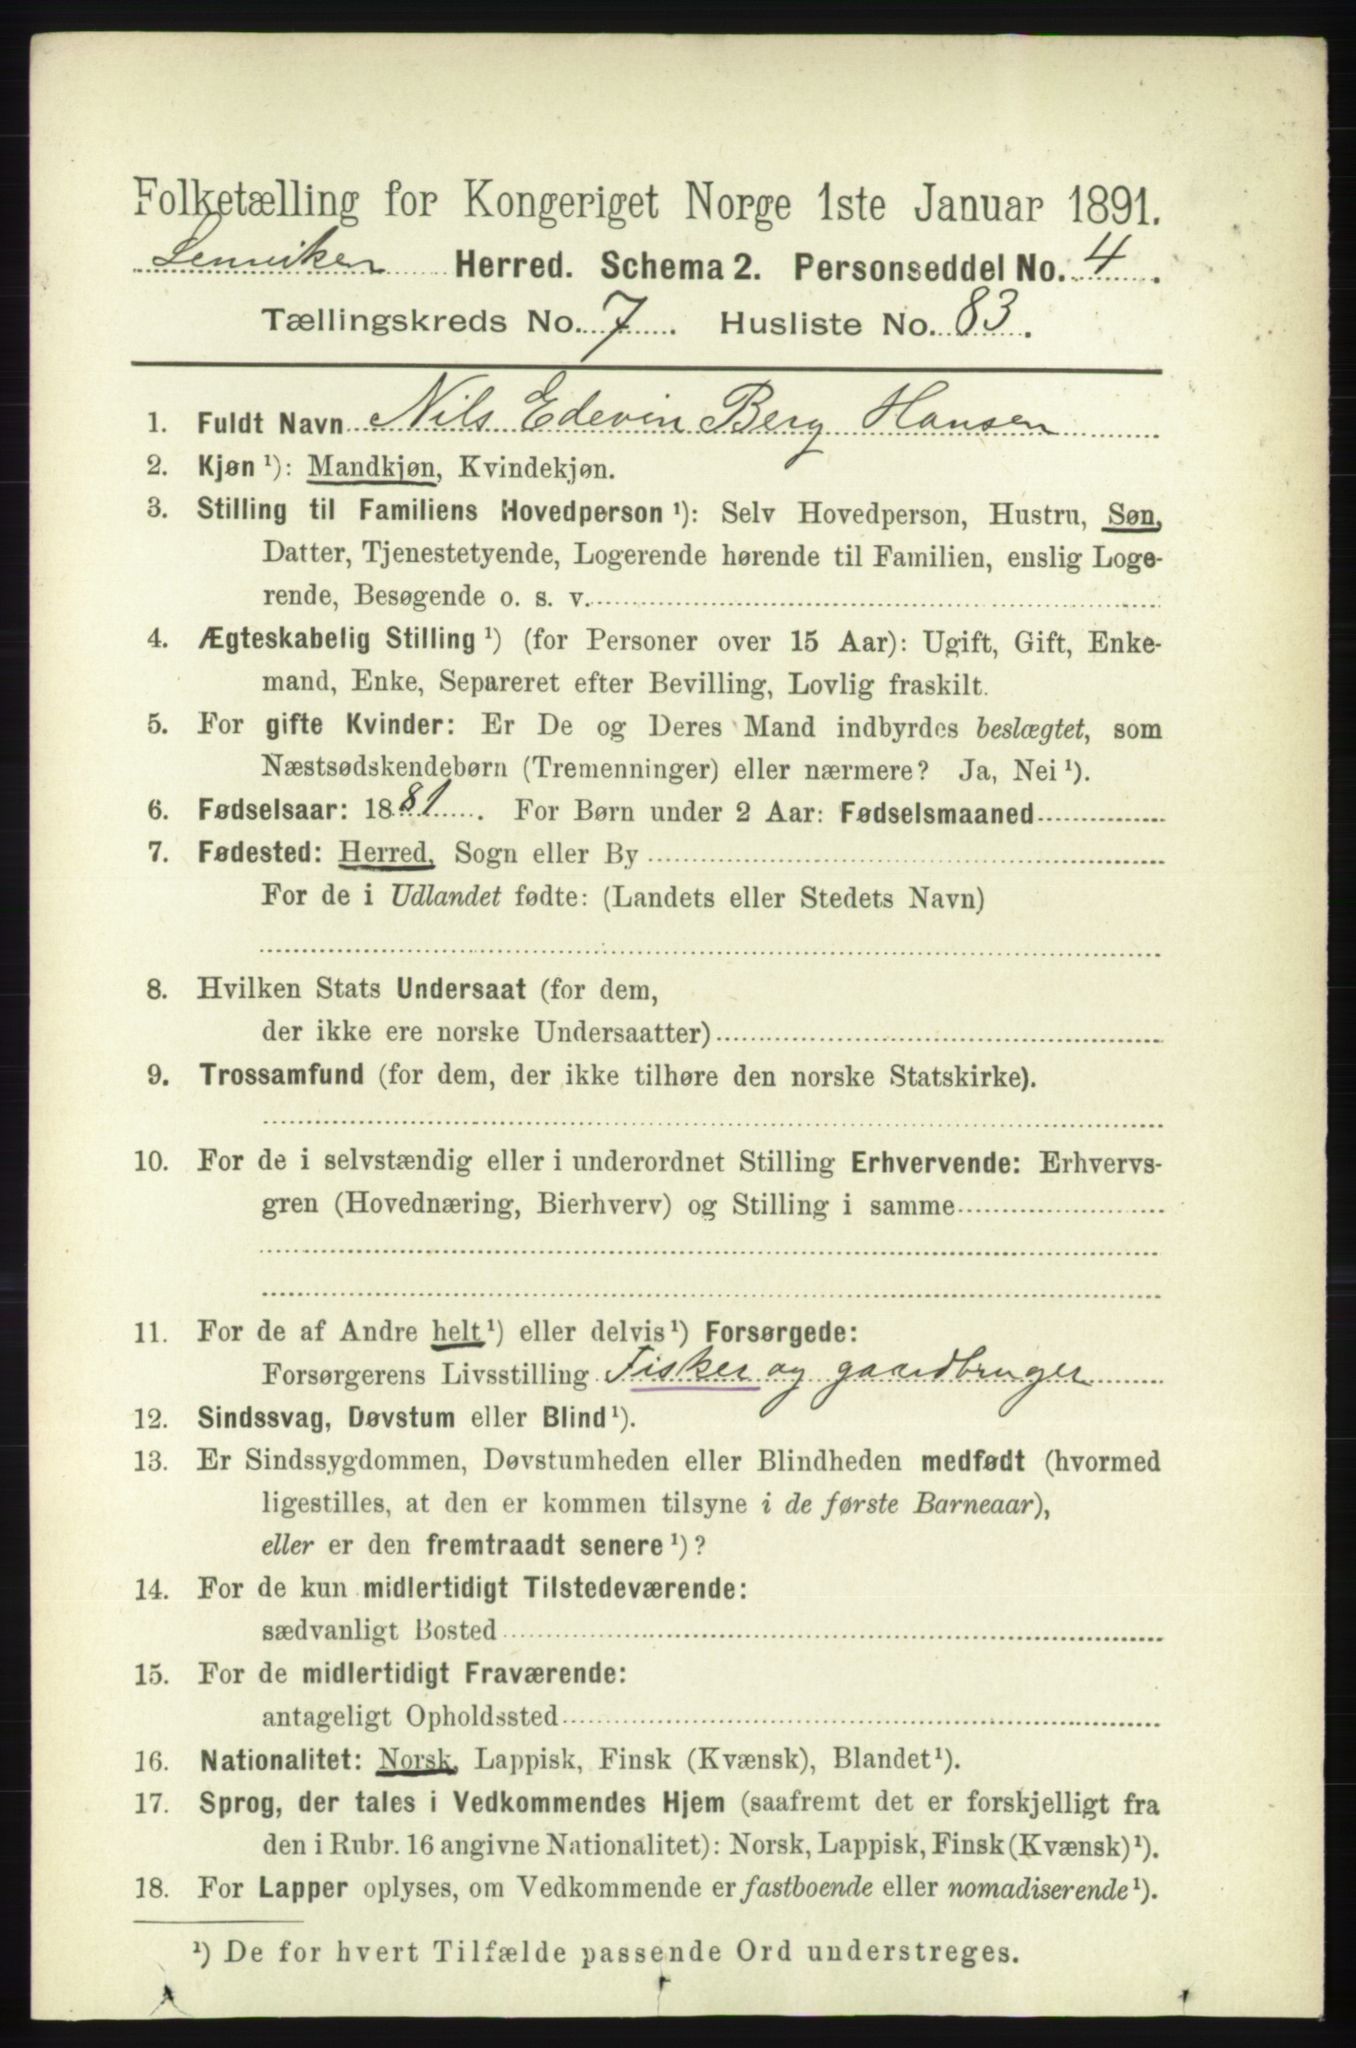 Folketælling for Kongeriget Norge 1ste Januar 1891.
Lenviken Herred. Schema 2. Personseddel No. 4.
Tællingskreds No. 7. Husliste No. 83.
1. Fuldt Navn Nils Edevin Berg Hansen
2. Kjøn ¹): Mandkjøn, Kvindekjøn.
3. Stilling til Familiens Hovedperson ¹): Selv Hovedperson, Hustru, Søn,
Datter, Tjenestetyende, Logerende hørende til Familien, enslig Loge-
rende, Besøgende o. s. v.
4. Ægteskabelig Stilling ¹) (for Personer over 15 Aar): Ugift, Gift, Enke-
mand, Enke, Separeret efter Bevilling, Lovlig fraskilt.
5. For gifte Kvinder: Er De og Deres Mand indbyrdes beslægtet, som
Næstsødskendebørn (Tremenninger) eller nærmere? Ja, Nei ¹).
6. Fødselsaar: 1881. For Børn under 2 Aar: Fødselsmaaned
7. Fødested: Herred, Sogn eller By
For de i Udlandet fødte: (Landets eller Stedets Navn)
8. Hvilken Stats Undersaat (for dem,
der ikke ere norske Undersaatter)
9. Trossamfund (for dem, der ikke tilhøre den norske Statskirke).
10. For de i selvstændig eller i underordnet Stilling Erhvervende: Erhvervs-
gren (Hovednæring, Bierhverv) og Stilling i samme
11. For de af Andre helt ¹) eller delvis ¹) Forsørgede:
Forsørgerens Livsstilling Fisker og gaardbruger
12. Sindssvag, Døvstum eller Blind ¹).
13. Er Sindssygdommen, Døvstumheden eller Blindheden medfødt (hvormed
ligestilles, at den er kommen tilsyne i de første Barneaar),
eller er den fremtraadt senere ¹)?
14. For de kun midlertidigt Tilstedeværende:
sædvanligt Bosted
15. For de midlertidigt Fraværende:
antageligt Opholdssted
16. Nationalitet: Norsk, Lappisk, Finsk (Kvænsk), Blandet ¹).
17. Sprog, der tales i Vedkommendes Hjem (saafremt det er forskjelligt fra
den i Rubr. 16 angivne Nationalitet): Norsk, Lappisk, Finsk (Kvænsk) ¹).
18. For Lapper oplyses, om Vedkommende er fastboende eller nomadiserende ¹).
¹) De for hvert Tilfælde passende Ord understreges.